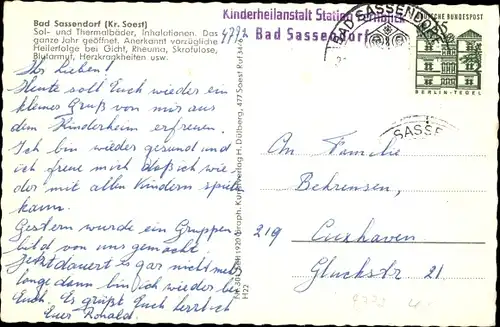 Bad Sassendorf (Kr. Soest)
Sol- und Thermalbäder, Inhalationen. Das
ganze Jahr geöffnet. Anerkannt vorzügliche
Heilerfolge bei Gicht, Rheuma, Skrofulose,
Blutarmut, Herzkrankheiten usw.
Ihr Lieben!
Heute soll Euch wieder ein
kleiner Gruß von mir aus
dem Kinderheim erfreuen.
Ich bin wieder gesund und
ich freue mich daß ich wie-
der mit allen Kindern spiele
kann.
Gestern wurde ein Gruppen
bild von uns gemacht.
Jetzt dauert es gar nicht meh
lange dann bin ich wieder bei
Euch. Es grüßt Euch herzlich
Euer Ronald.
Kunstverlag H. Dülberg, 477 Soest Ruf
H22
Kinderheilanstalt Station
4772 Bad Sassendorf
BAD SASSENDORF
DEUTSCHE BUNDESPOST
BERLIN-TEGEL
SASSE
An Familie
Behrensen,
219 Cuxhaven
Gluckstr. 21